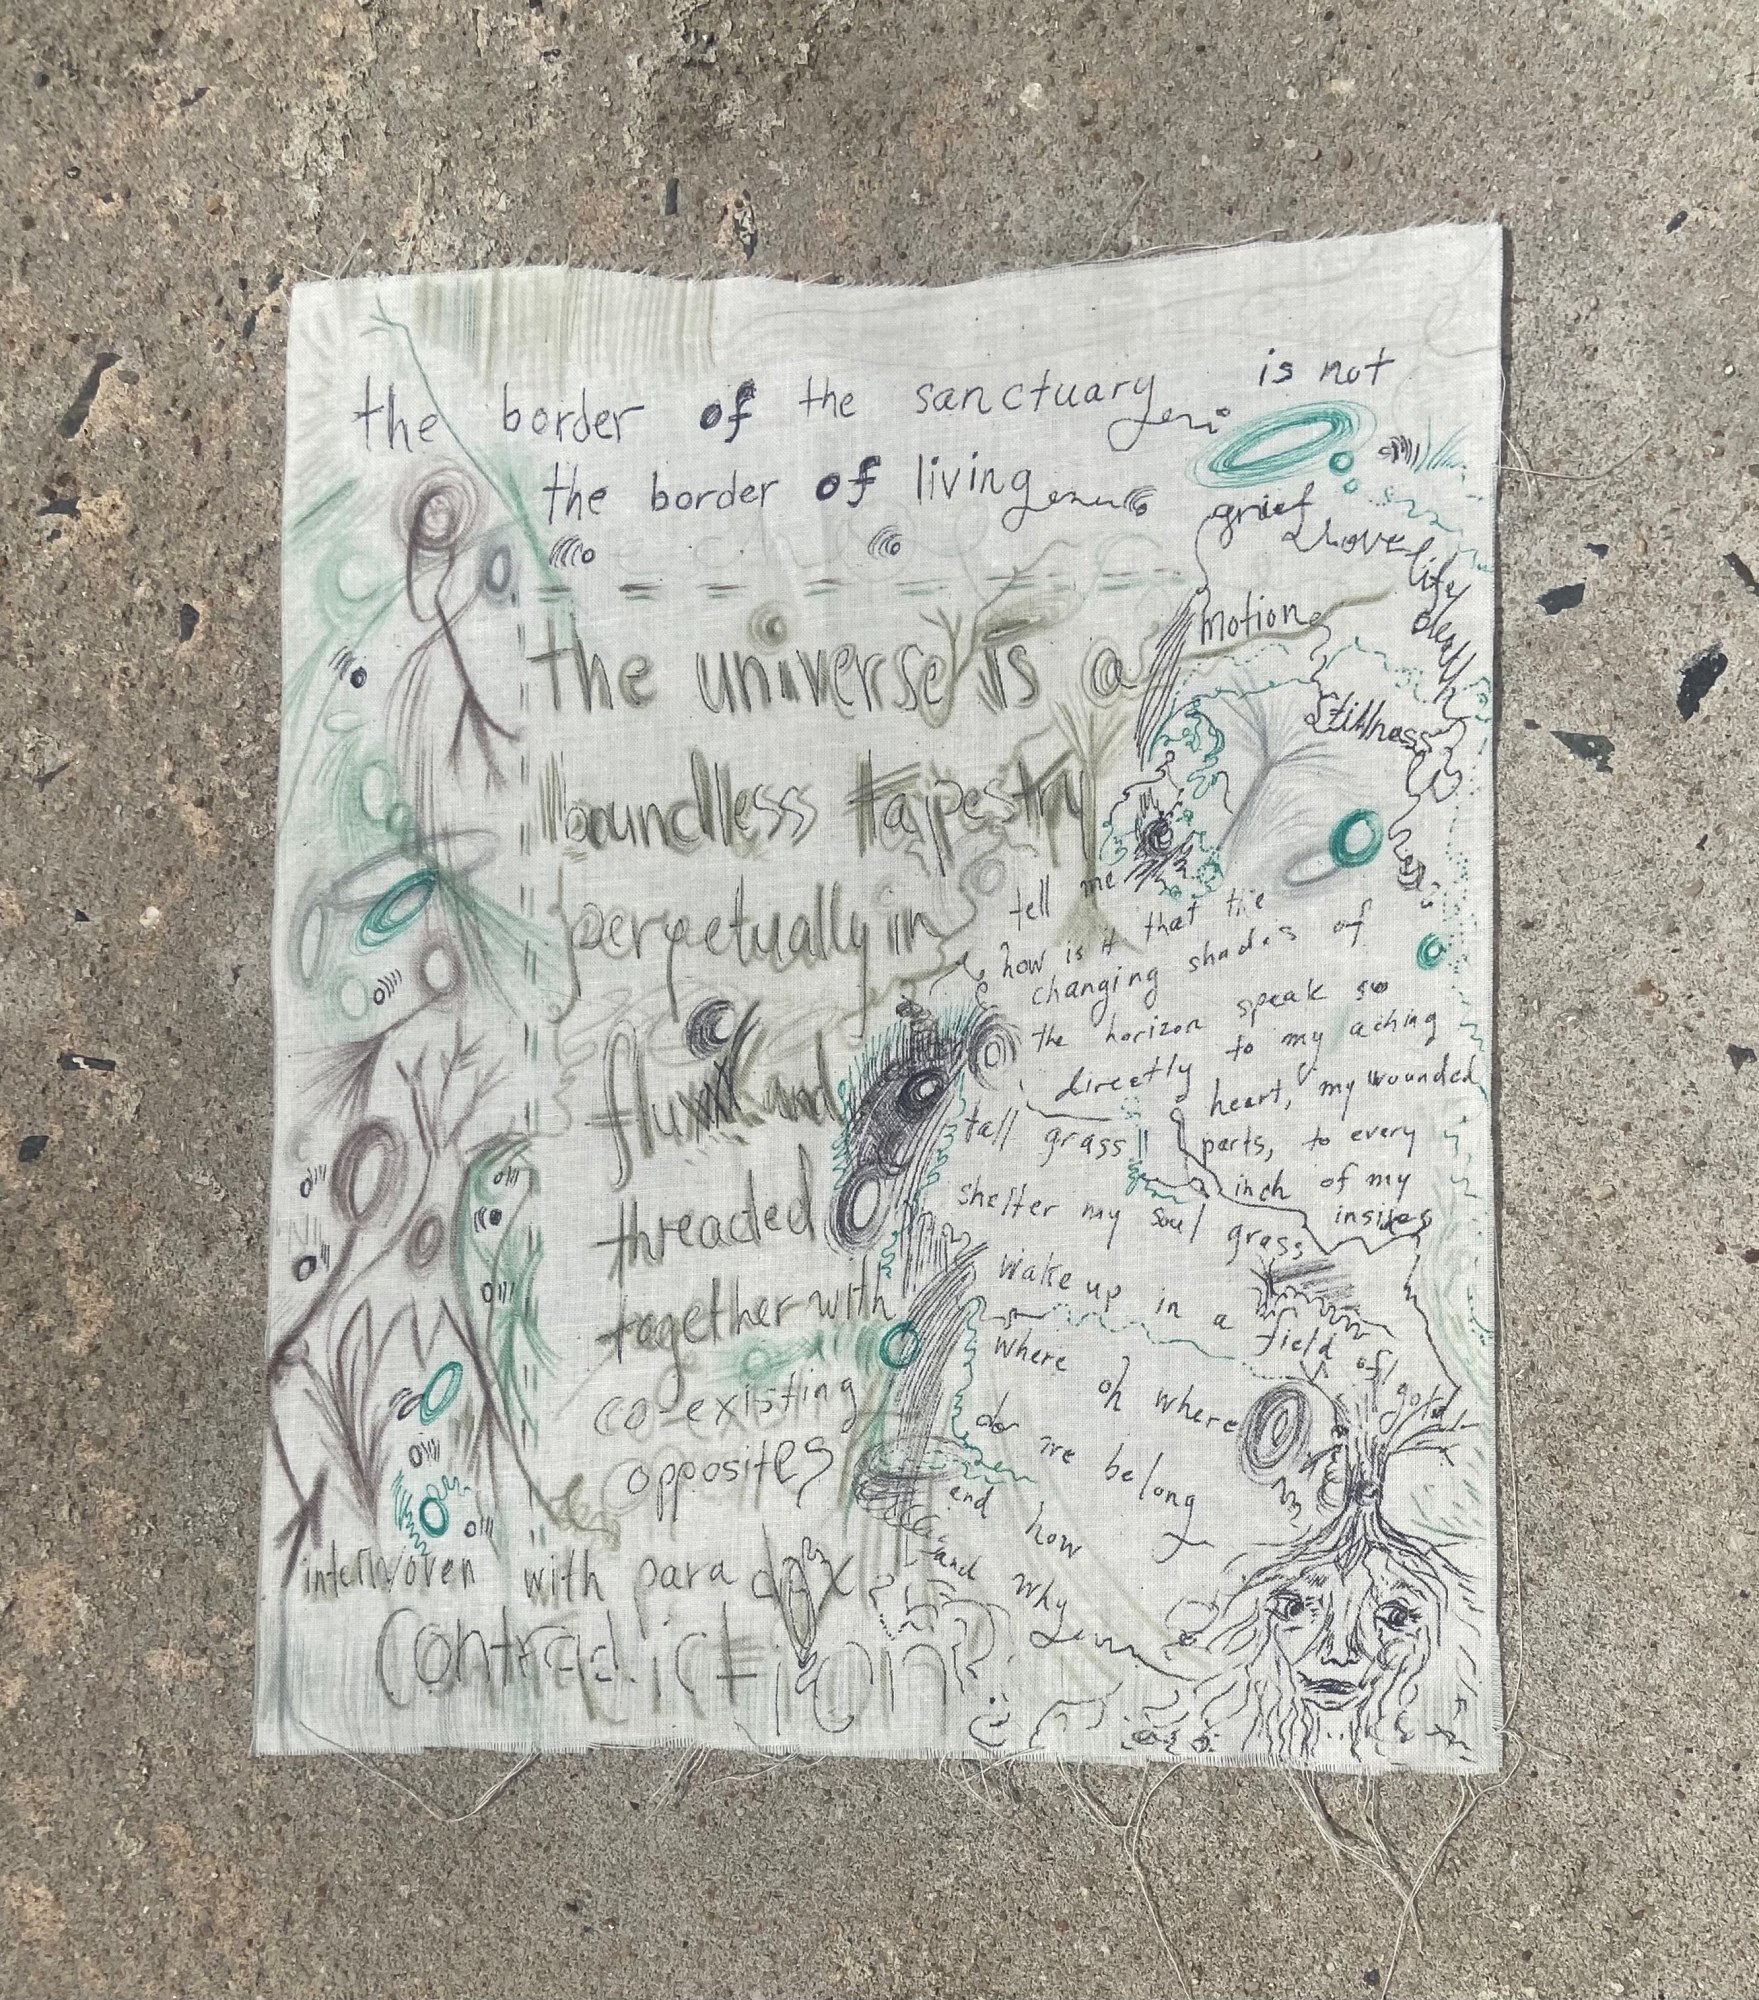 the border of the sanctuary is not
the border of living
grief
& love
life/
death
motion
stillness
the universe is a
boundless tapestry
perpetually in
flux and
threaded
together with
co-existing
opposites
interwoven with paradox
contradiction
tell me
how is it that the
changing shades of
the horizon speak so
directly to my aching
heart, my wounded
parts, to every
inch of my
insides
tall grass
shelter my soul grass
wake up in a
field of gold
where oh where
do we belong
and how
and why